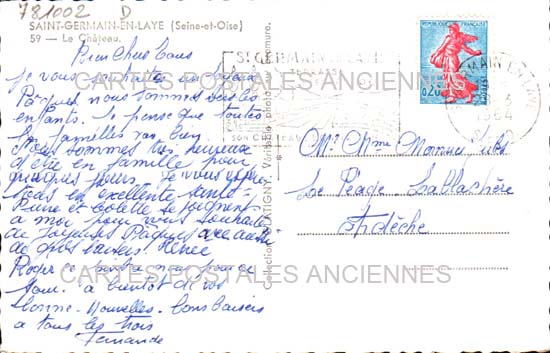 781002 D
SAINT-GERMAIN-EN-LAYE (Seine-et-Oise)
59 - Le Château.
Bien Chers tous
Je vous souhaite un joyeux
Pâques, nous sommes avec les
enfants. Je pense que toutes
les familles vas bien
Nous sommes très heureux
d'être en famille pour
quelques jours. Je vous espère
tous en excellente santé
et Colette se joignent
a moi pour vous souhaiter
de Joyeuses Pâques avec aussi
de gros baisers.
Roger
a bientôt de vos
bonne Nouvelles. Bons baisers
a tous les trois
Fernande
Collection
Véritable photo au bromure.
ST GERMAIN EN LAYE
SON CHATEAU
RÉPUBLIQUE FRANÇAISE
0,20
POSTES
GERMAIN EN LAYE
1964
Mr et Mme
Le Péage Lablachère
Ardèche
CARTES POSTALES ANCIENNES
CARTES POSTALES ANCIENNES